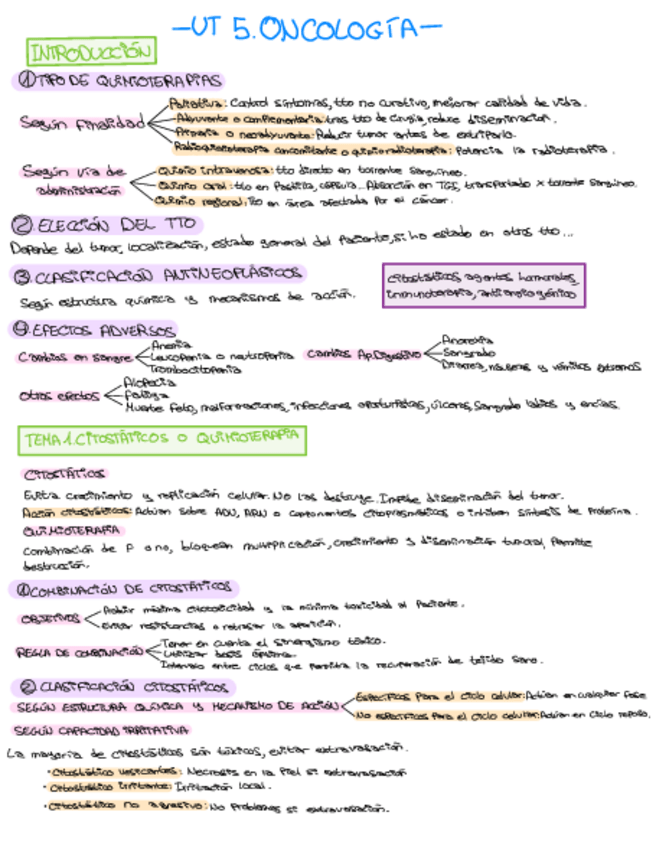 -UT 5. ONCOLOGÍA-
INTRODUCCIÓN
① TIPO DE QUIMIOTERAPIAS
Según finalidad
Paliativa: Control síntomas, tto no curativo, mejorar calidad de vida.
Adyuvante o complementaria: tras tto de cirugía, reduce diseminación.
Primaria o neoadyuvante: Reducir tumor antes de extirparlo.
Radioquimioterapia concomitante o quimioradioterapia: Potencia la radioterapia.
Según vía de administración
Quimio intravenosa: tto directo en torrente sanguíneo.
Quimio oral: tto en Pastilla, cápsula... Absorción en TGI, transportado x torrente sanguíneo.
Quimio regional: tto en área afectada por el cáncer.
② ELECCIÓN DEL TTO
Depende del tumor, localización, estado general del paciente, si ha estado en otros tto...
③ CLASIFICACIÓN ANTINEOPLÁSICOS
Según estructura química y mecanismos de acción.
Citostáticos, agentes hormonales,
inmunoterapia, antiangiogénico
④ EFECTOS ADVERSOS
Cambios en sangre
Anemia
Leucopenia o neutropenia
Trombocitopenia
Cambios Ap. Digestivo
Anorexia
Sangrado
Diarrea, náuseas y vómitos extremos
Otros efectos
Alopecia
Fatiga
Muerte feto, malformaciones, infecciones oportunistas, úlceras, sangrado labios y encías.
TEMA 1. CITOSTÁTICOS O QUIMIOTERAPIA
CITOSTÁTICOS
Evita crecimiento y replicación celular. No las destruye. Impide diseminación del tumor.
Acción citostáticos: Actúan sobre ADN, ARN o componentes citoplasmáticos o inhiben síntesis de proteína.
QUIMIOTERAPIA
Combinación de F o no, bloquean multiplicación, crecimiento y diseminación tumoral, permite
destrucción.
① COMBINACIÓN DE CITOSTÁTICOS
OBJETIVOS
máxima citotoxicidad y la mínima toxicidad al paciente.
Evitar resistencias o retrasar la aparición.
REGLA DE COMBINACIÓN
Tener en cuenta el sinergismo tóxico.
Utilizar dosis óptima.
Intervalo entre ciclos que permita la recuperación de tejido sano.
② CLASIFICACIÓN CITOSTÁTICOS
SEGÚN ESTRUCTURA QUÍMICA Y MECANISMO DE ACCIÓN
Específicos para el ciclo celular: Actúan en cualquier fase
No específicos para el ciclo celular: Actúan en ciclo reposo.
SEGÚN CAPACIDAD IRRITATIVA
La mayoría de citostáticos son tóxicos, evitar extravasación.
· Citostático vesicantes: Necrosis en la Piel si extravasación
· Citostático irritante: Irritación local.
· Citostático no agresivo: No Problemas si extravasación.